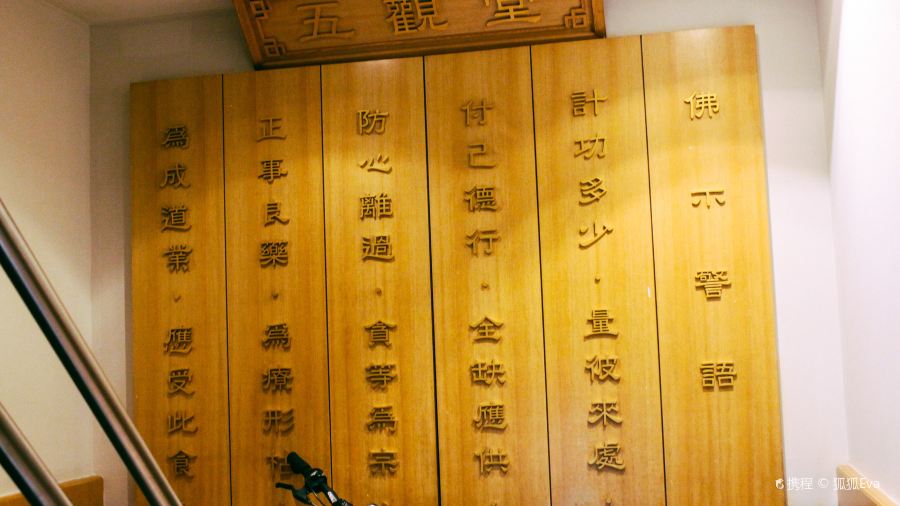 五觀堂
佛示警語
計功多少·量彼來處
付己德行·全缺應供
防心離過·貪等為宗
正事良藥·為療形枯
為成道業·應受此食
携程 © 狐狐Eva